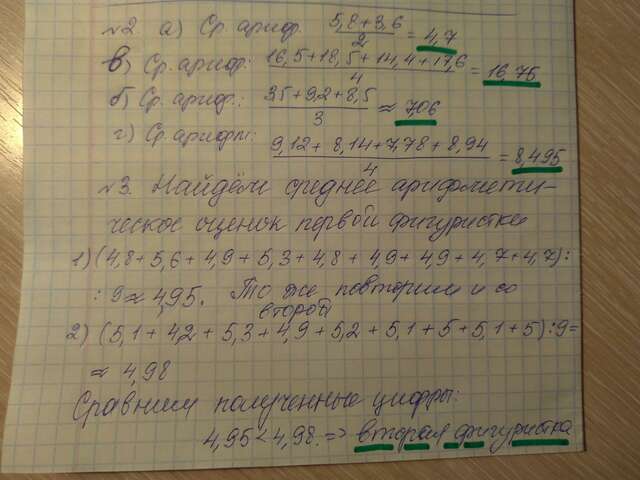 №2. а) Ср. ариф. 5,8+3,6/2 = 4,7
в) Ср. ариф: 16,5+18,5+14,4+17,6/4 = 16,75
б) Ср. ариф.: 3,5+9,2+8,5/3 ≈ 7,06
г) Ср. арифм: 9,12+8,14+7,78+8,94/4 = 8,495
№3. Найдём среднее арифмети-
ческое оценок первой фигуристки
1) (4,8+5,6+4,9+5,3+4,8+4,9+4,9+4,7+4,7):
:9≈4,95. То же повторим и со
второй
2) (5,1+4,2+5,3+4,9+5,2+5,1+5+5,1+5):9=
≈ 4,98
Сравним полученные цифры:
4,95<4,98. => вторая фигуристка